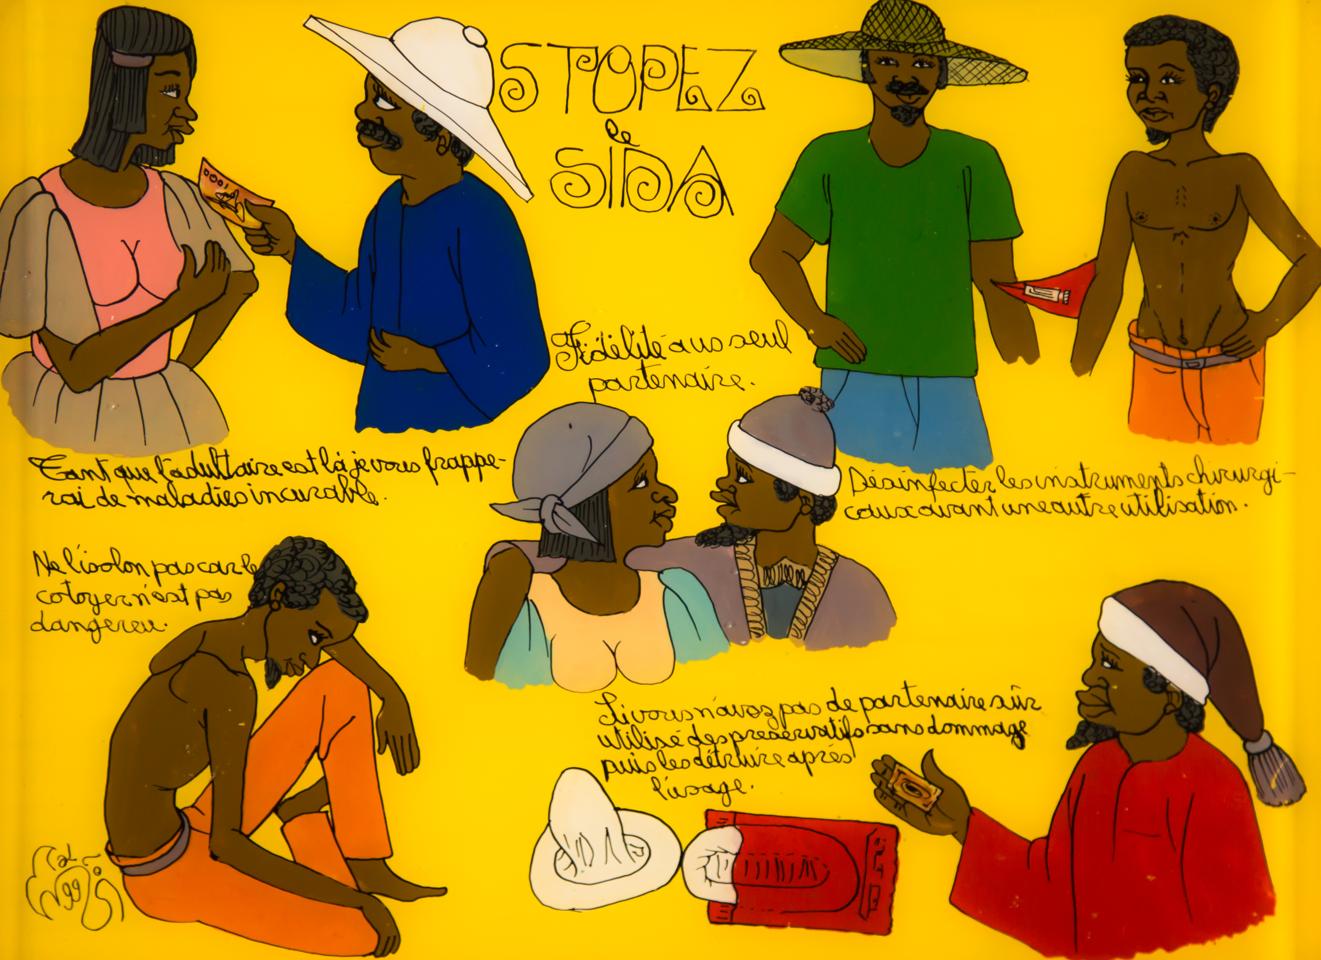 STOPEZ
le
SIDA
Fidélité a us seul
partenaire.
Tant que l'adultaire est là je vous frappe-
rai de maladies incurable.
Désinfecter les instruments chirurgi-
caux avant une autre utilisation.
Ne l'isolon pas car le
cotoyer n'est pas
dangereu.
Si vous n'avez pas de partenaire sûr
utilisé des preservatifs sans dommage
puis les détruire après
l'usage.
SIDA